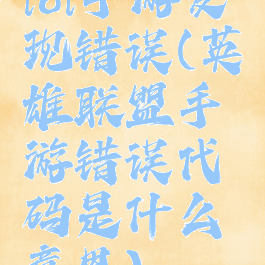 lol手游发
现错误(英
雄联盟手
游错误代
码是什么
意思)